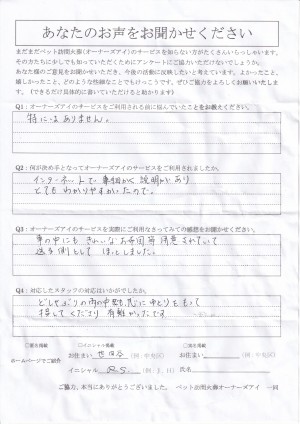 あなたのお声をお聞かせください
まだまだペット訪問火葬(オーナーズアイ)のサービスを知らない方がたくさんいらっしゃいます。
そのために少しでも知っていただくためにアンケートにご協力いただけないでしょうか。
あなた様のご意見をお聞かせいただき、今後の活動に反映したいと考えています。よかったこと、
嬉しかったこと、どのような些細なことでもけっこうです。ぜひご協力をよろしくお願いいたします。(できるだけ具体的に書いていただけると助かります)
Q1:オーナーズアイのサービスをご利用される前に悩んでいたことをお教えください。
特にはありません。
Q2:何が決め手となってオーナーズアイのサービスをご利用されましたか。
インターネットで事細かく説明があり
とてもわかりやすかたので。
Q3:オーナーズアイのサービスを実際にご利用なさってみての感想をお聞かせください。
車の中にもきれいなお花
用意されていて
送る側としてほっとしました。
Q4:対応したスタッフの対応はいかがでしたか。
どしゃぶりの雨の中
ゆとりをもって
接してくださり有難かったです
□匿名掲載 □イニシャル掲載
ホームページでご紹介
お住まい 世田谷 (例:中央区)
お住まい (例:中央区)
イニシャル R.S.
氏名
ご協力、本当にありがとうございました。 ペット訪問火葬オーナーズアイ 一同